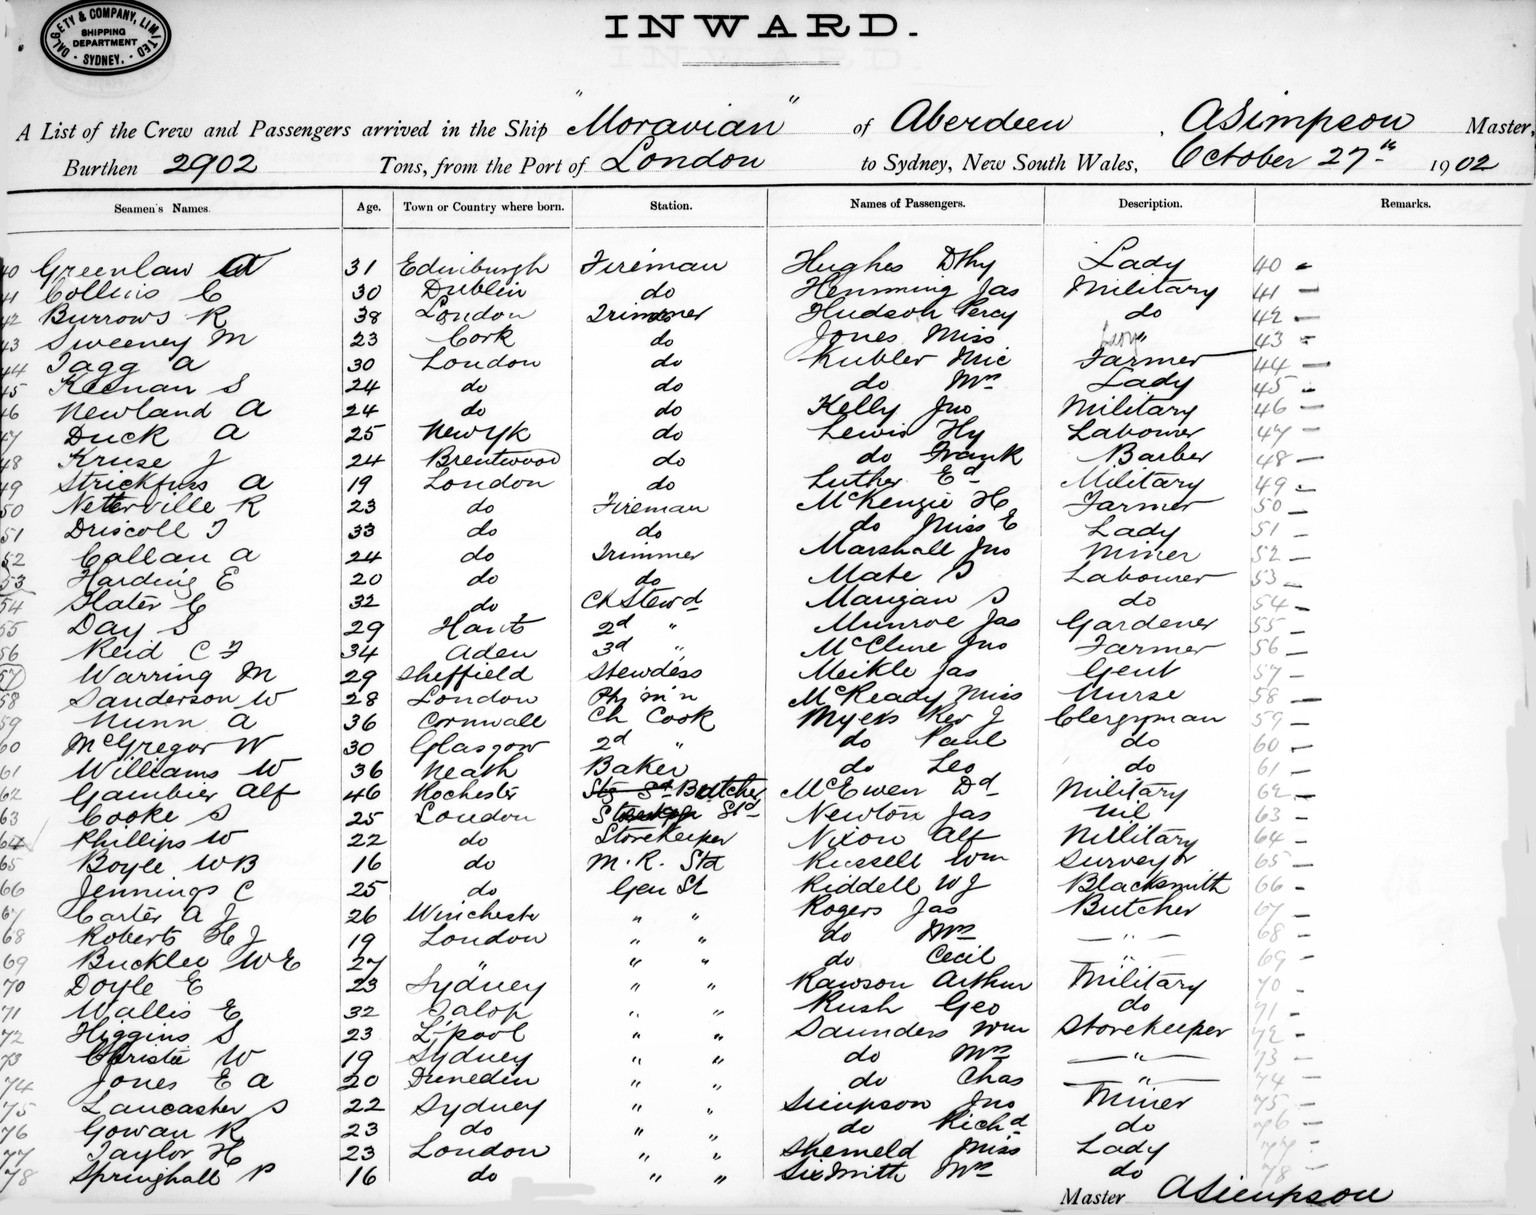 DALGETY & COMPANY, LIMITED
SHIPPING
DEPARTMENT
SYDNEY.
INWARD.
A List of the Crew and Passengers arrived in the Ship "Moravian" of Aberdeen, A Simpson Master,
Burthen 2902 Tons, from the Port of London to Sydney, New South Wales, October 27th 1902
Seamen's Names. Age. Town or Country where born. Station. Names of Passengers. Description. Remarks.
40 Greenlaw A 31 Edinburgh Fireman Hughes Dthy Lady 40 -
41 Collins C 30 Dublin do Hemming Jas Military 41 -
42 Burrows R 38 London Trimmer Hudson Percy do 42 -
43 Sweeney M 23 Cork do Jones Miss 43 -
44 Tagg A 30 London do Kubler Mic Farmer 44 -
45 Keenan S 24 do do do Mrs Lady 45 -
46 Newland A 24 do do Kelly Jno Military 46 -
47 Duck A 25 New Yk do Lewis Hy Labourer 47 -
48 Kruse J 24 Brentwood do do Frank Barber 48 -
49 Strickfuss A 19 London do Luther Ed Military 49 -
50 Netterville R 23 do Fireman McKenzie H Farmer 50 -
51 Driscoll T 33 do do do Miss E Lady 51 -
52 Callan A 24 do Trimmer Marshall Jno Miner 52 -
53 Harding E 20 do do Mate S Labourer 53 -
54 Slater E 32 do Ch Stewd Marigan S do 54 -
55 Day S 29 Hants 2d " Munroe Jas Gardener 55 -
56 Reid C F 34 Aden 3d " McClure Jno Farmer 56 -
57 Warring M 29 Sheffield Stewdess Meikle Jas Gent 57 -
58 Sanderson W 28 London McReady Miss Nurse 58 -
59 Nunn A 36 Cornwall Ch Cook Myers Rev J Clergyman 59 -
60 McGregor W 30 Glasgow 2d " do Paul do 60 -
61 Williams W 36 Neath Baker do Leo do 61 -
62 Gambier Alf 46 Rochester Butcher McEwen Dd Military 62 -
63 Cooke S 25 London Std Newton Jas Nil 63 -
64 Phillips W 22 do Storekeeper Nixon Alf Military 64 -
65 Boyle W B 16 do M. R. Std Russell Wm Surveyor 65 -
66 Jennings C 25 do Gen St Riddell W J Blacksmith 66 -
67 Carter A J 26 Winchestr " " Rogers Jas Butcher 67 -
68 Roberts H J 19 London " " do Mrs — " — 68 -
69 Bucklee W E 27 " " " do Cecil — " — 69 -
70 Doyle E 23 Sydney " " Rawson Arthur Military 70 -
71 Wallis E 32 " " Rush Geo do 71 -
72 Higgins S 23 L'pool " " Saunders Wm Storekeeper 72 -
73 Christie W 19 Sydney " " do Mrs — " — 73 -
74 Jones E A 20 Dunedin " " do Chas — " — 74 -
75 Lancaster S 22 Sydney " " Simpson Jno Miner 75 -
76 Gowan R 23 do " " do Richd do 76 -
77 Taylor H 23 London " " Shemeld Miss Lady 77 -
78 Springhall P 16 do " " Sixsmith Mrs do 78 -
Master A Simpson